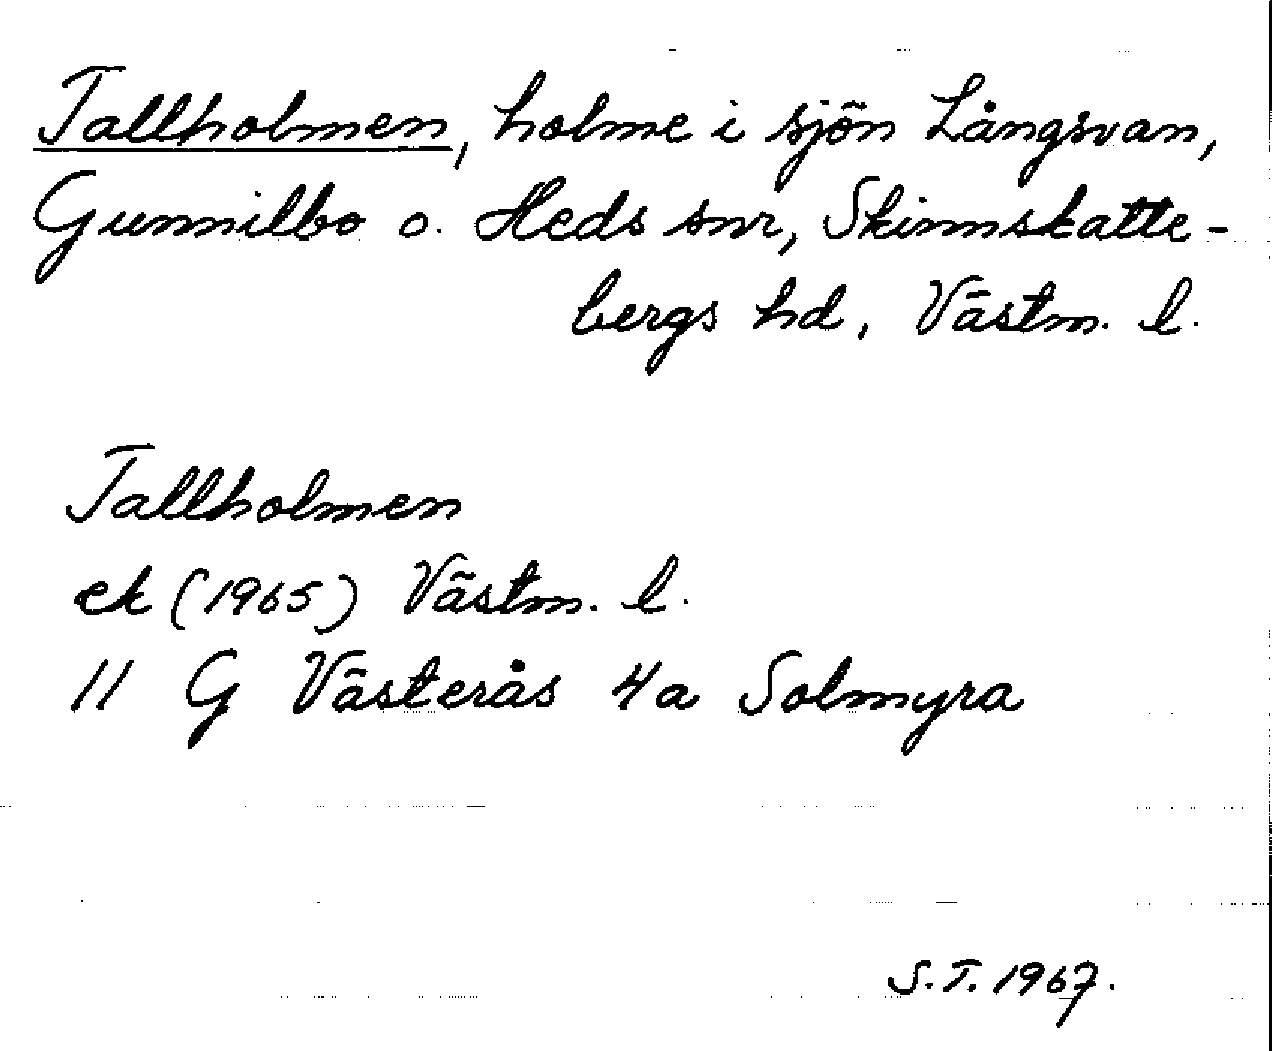 Tallholmen, holme i sjön Långsvan,
Gunnilbo o. Heds snr, Skinnskatte-
bergs hd, Västm. l.
Tallholmen
ek (1965) Västm. l.
11 G Västerås 4a Solmyra
S.T. 1967.